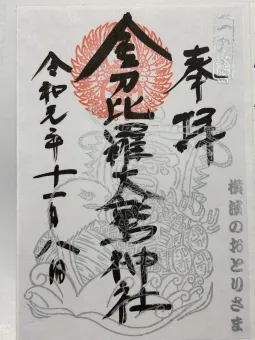 奉拝
横濱のおとりさま
金刀比羅大鷲神社
令和元年十一月八日